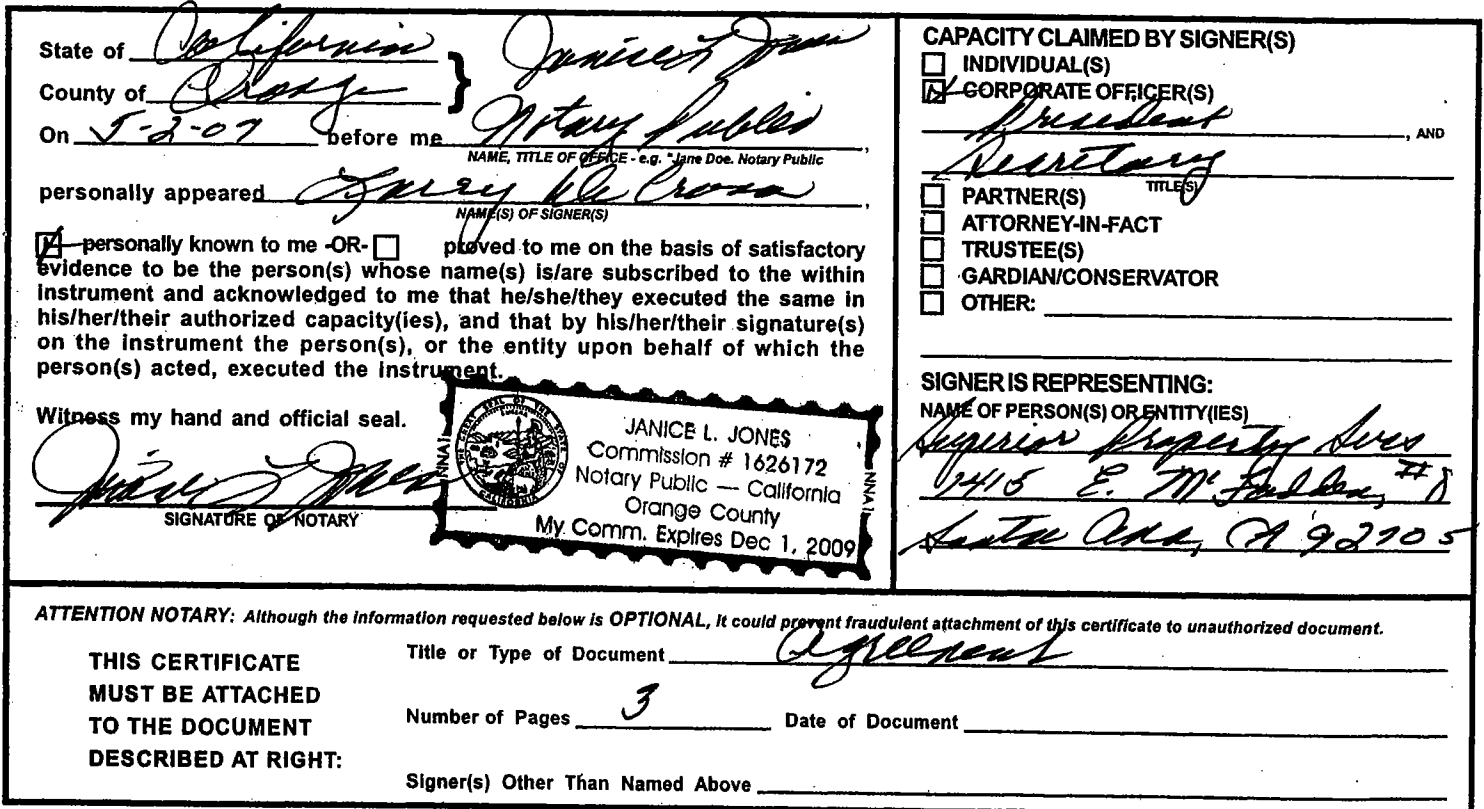 State of California
County of Orange
On 5-2-07 before me Janice L Jones
Notary Public
NAME, TITLE OF OFFICE - e.g. "Jane Doe. Notary Public
personally appeared Larry De Crona
NAME(S) OF SIGNER(S)
personally known to me -OR- proved to me on the basis of satisfactory
evidence to be the person(s) whose name(s) is/are subscribed to the within
instrument and acknowledged to me that he/she/they executed the same in
his/her/their authorized capacity(ies), and that by his/her/their signature(s)
on the instrument the person(s), or the entity upon behalf of which the
person(s) acted, executed the instrument.
Witness my hand and official seal.
Janice L Jones
SIGNATURE OF NOTARY
THE GREAT SEAL OF THE STATE OF CALIFORNIA
EUREKA
NNA
JANICE L. JONES
Commission # 1626172
Notary Public — California
Orange County
My Comm. Expires Dec 1, 2009
NNA
CAPACITY CLAIMED BY SIGNER(S)
INDIVIDUAL(S)
CORPORATE OFFICER(S)
President, AND
Secretary
TITLE(S)
PARTNER(S)
ATTORNEY-IN-FACT
TRUSTEE(S)
GARDIAN/CONSERVATOR
OTHER:
SIGNER IS REPRESENTING:
NAME OF PERSON(S) OR ENTITY(IES)
Superior Property Svcs
1415 E. McFadden, #8
Santa Ana, CA 92705
ATTENTION NOTARY: Although the information requested below is OPTIONAL, it could prevent fraudulent attachment of this certificate to unauthorized document.
THIS CERTIFICATE
MUST BE ATTACHED
TO THE DOCUMENT
DESCRIBED AT RIGHT:
Title or Type of Document Agreement
Number of Pages 3 Date of Document
Signer(s) Other Than Named Above